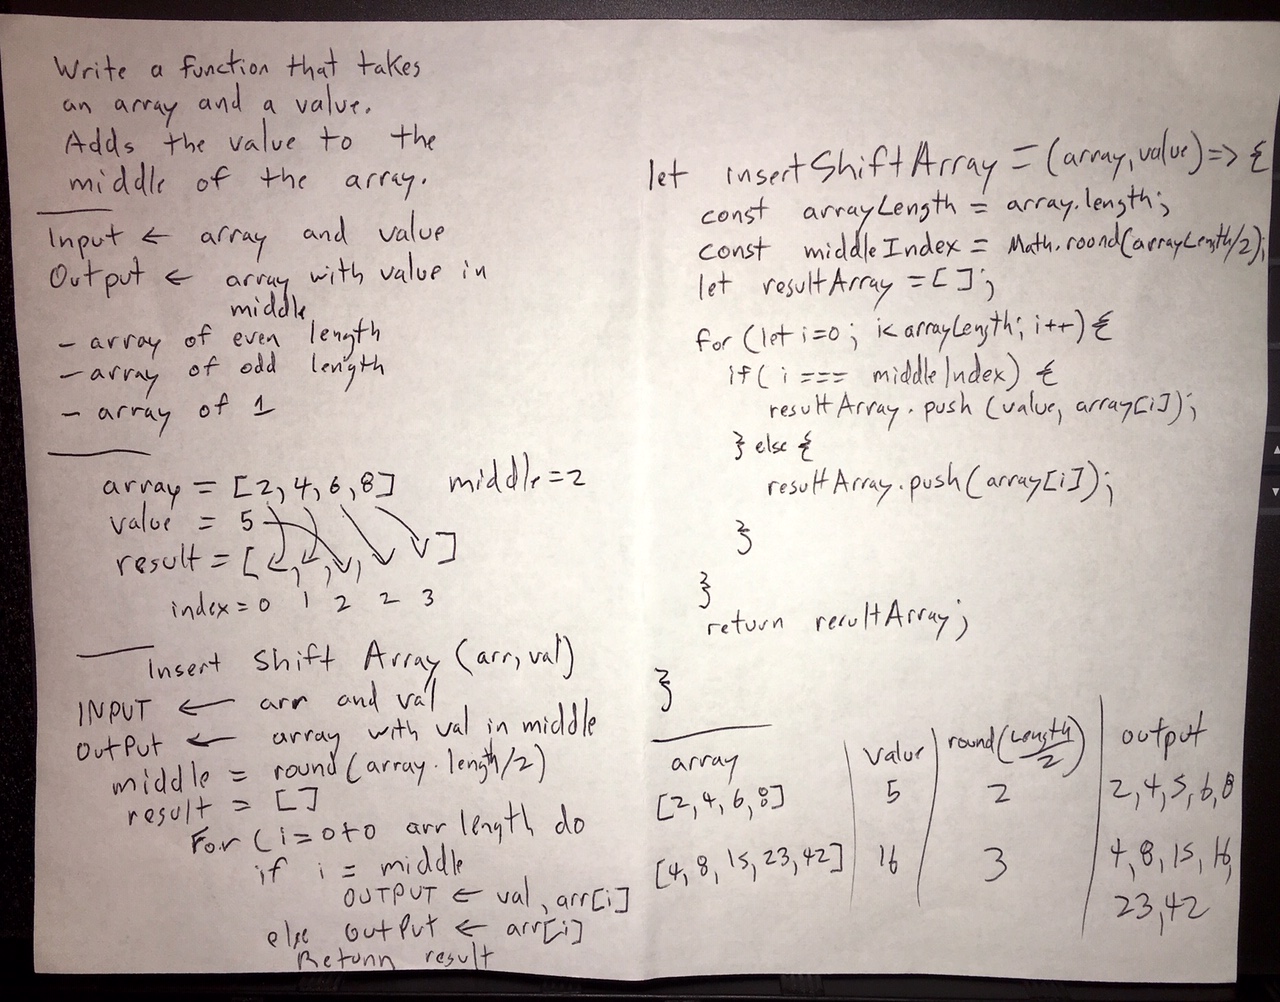 Write a function that takes
an array and a value.
Adds the value to the
middle of the array.
Input ← array and value
Output ← array with value in
middle
- array of even length
- array of odd length
- array of 1
array = [2, 4, 6, 8] middle = 2
value = 5
result = [ , , , ]
index = 0 1 2 2 3
Insert Shift Array (arr, val)
INPUT ← arr and val
OUTPUT ← array with val in middle
middle = round (array.length/2)
result = []
For (i = 0 to arr length do
if i = middle
OUTPUT ← val, arr[i]
else OUTPUT ← arr[i]
Return result
let insertShiftArray = (array, value) => {
const arrayLength = array.length;
const middleIndex = Math.round(arrayLength/2);
let resultArray = [];
for (let i=0; i< arrayLength; i++) {
if( i === middleIndex) {
resultArray.push (value, array[i]);
} else {
resultArray.push(array[i]);
}
}
return resultArray;
}
array value round(Length/2) output
[2, 4, 6, 8] 5 2 2, 4, 5, 6, 8
[4, 8, 15, 23, 42] 16 3 4, 8, 15, 16,
23, 42